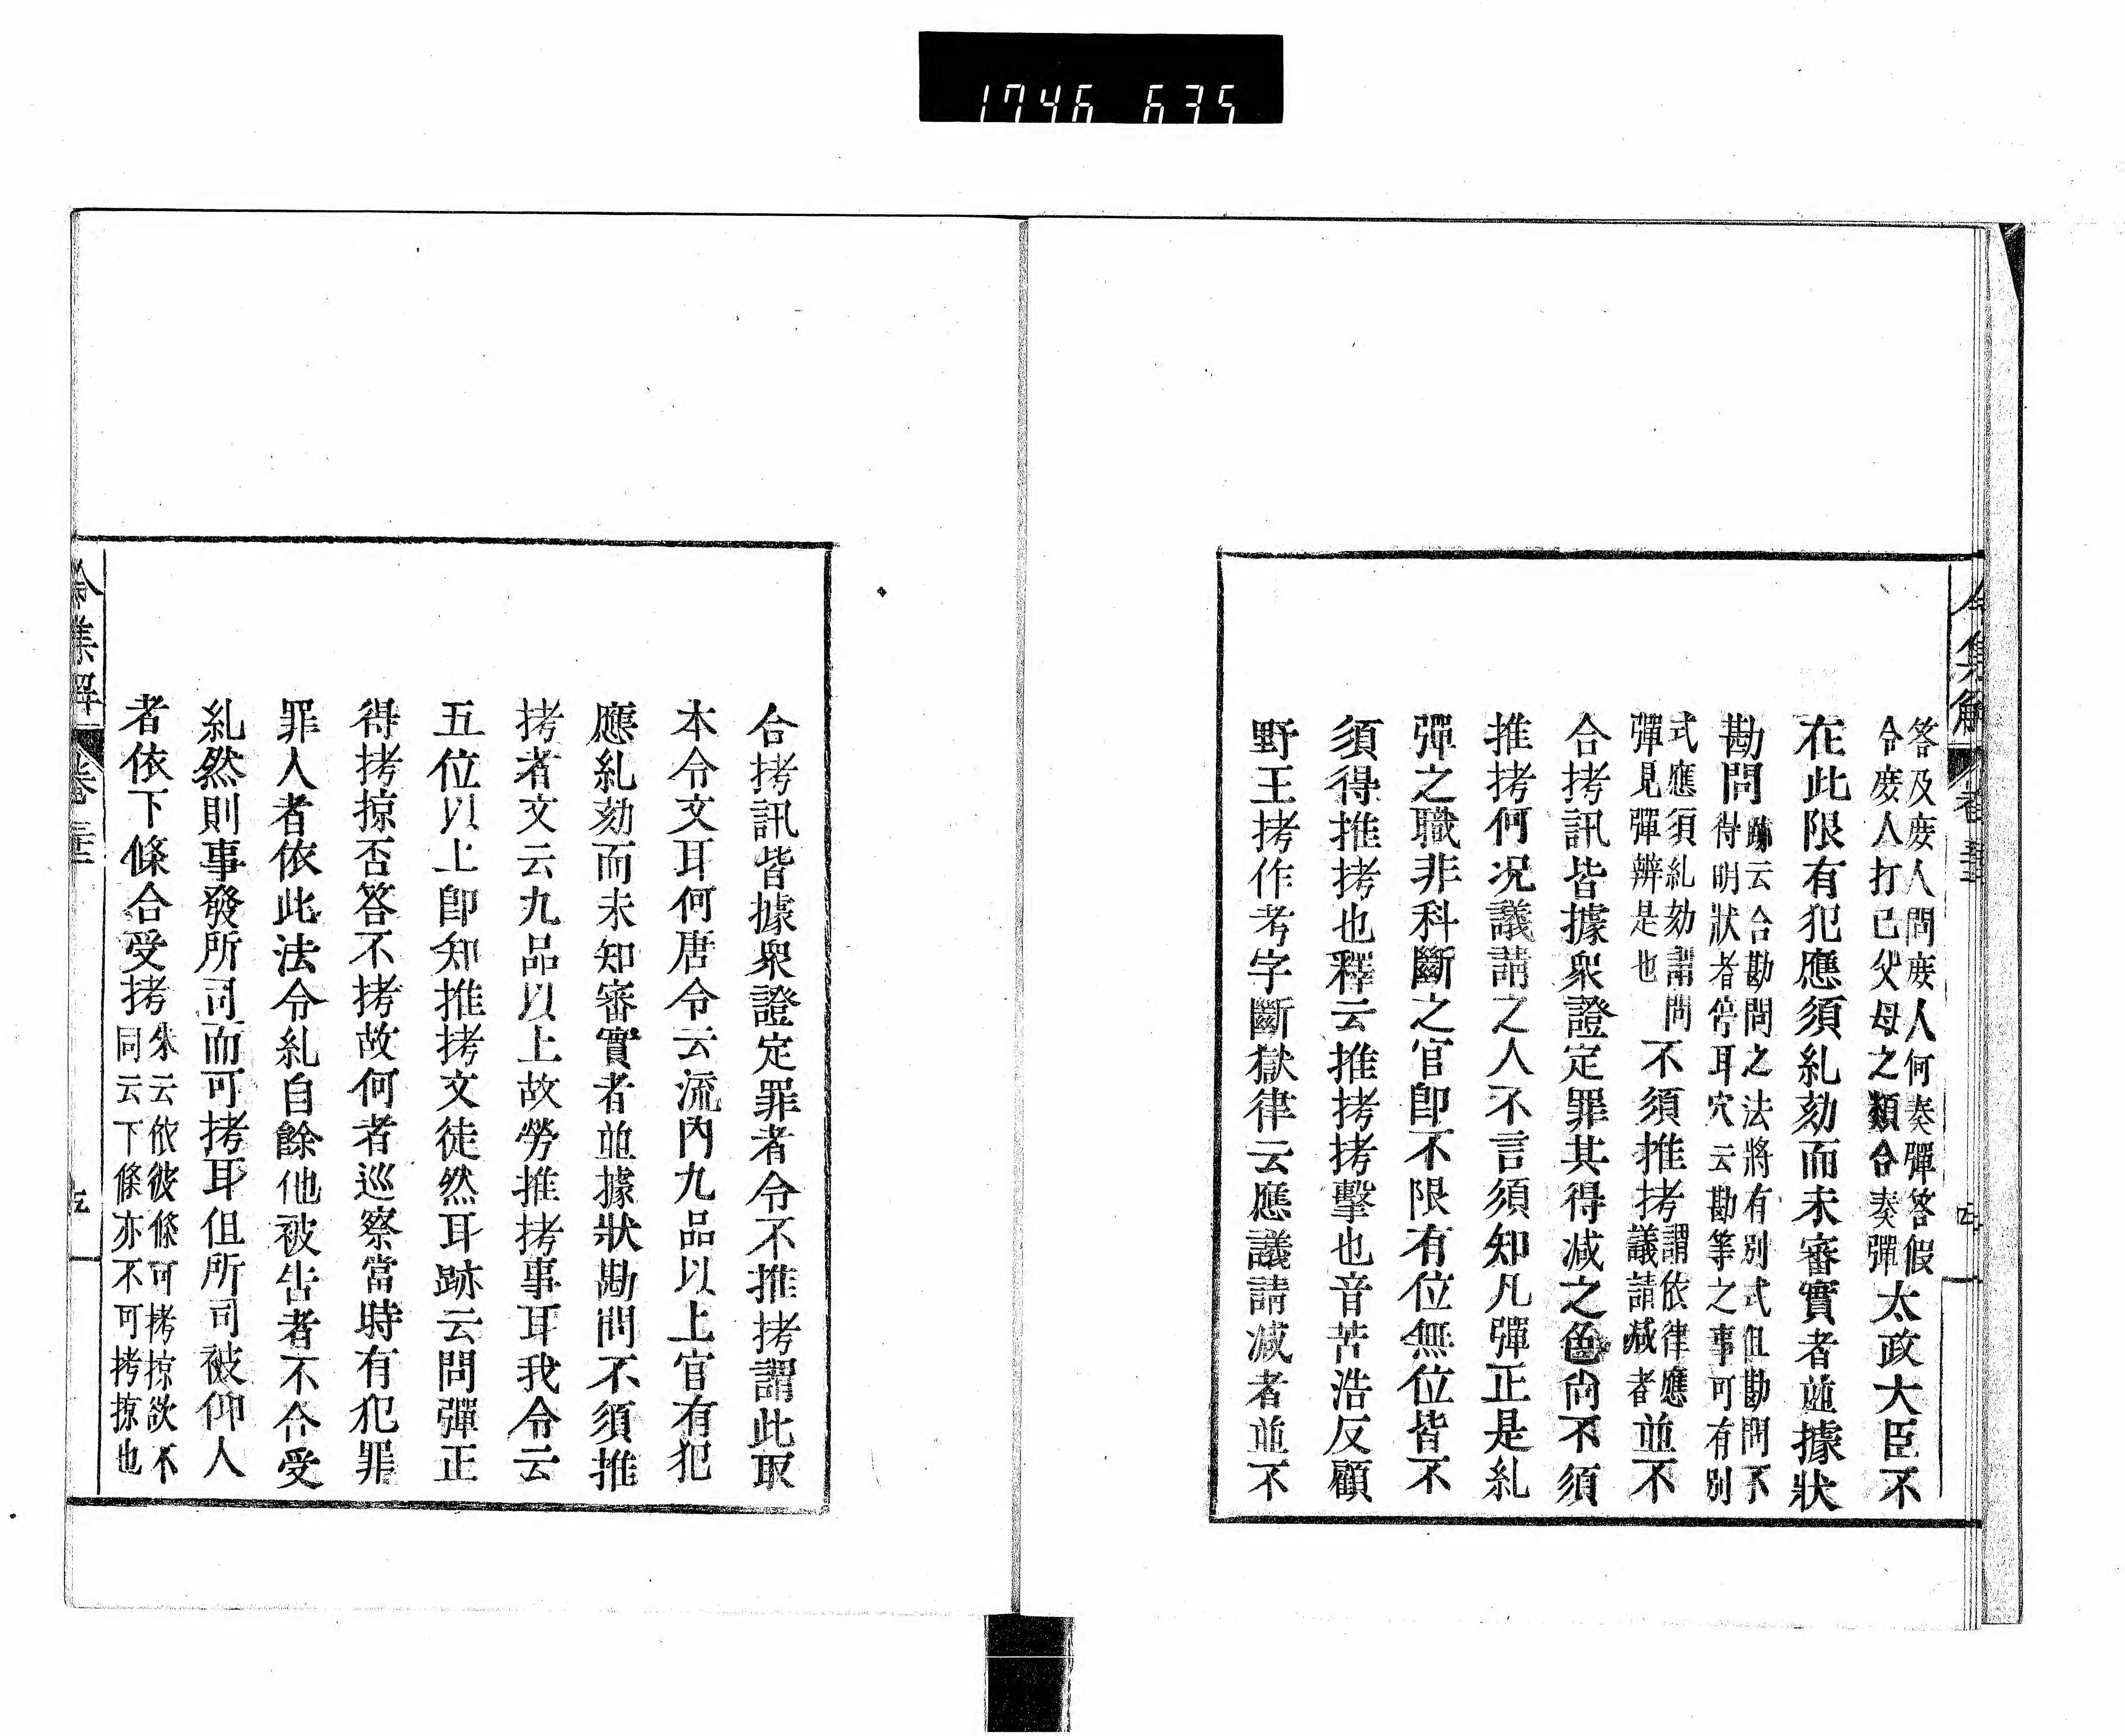 1746 635
令集解 卷三十五 四
答及庶人問庶人何奏彈答假
令庶人打己父母之類合奏彈太政大臣不
在此限有犯應須糺劾而未審實者並據狀
勘問跡云合勘問之法將有別式但勘問不
得明狀者停耳穴云勘等之事可有別
式應須糺劾謂問
彈見彈辨是也不須推拷謂依律應
議請减者並不
合拷訊皆據衆證定罪其得减之色尚不須
推拷何况議請之人不言須知凡彈正是糺
彈之職非科斷之官卽不限有位無位皆不
須得推拷也釋云推拷拷擊也音苦浩反顧
野王拷作考字斷獄律云應議請减者並不
合拷訊皆據衆證定罪者令不推拷謂此取
本令文耳何唐令云流內九品以上官有犯
應糺劾而未知審實者並據狀勘問不須推
拷者文云九品以上故勞推拷事耳我令云
五位以上卽知推拷文徒然耳跡云問彈正
得拷掠否答不拷故何者巡察當時有犯罪
罪人者依此法令糺自餘他被告者不合受
糺然則事發所司而可拷耳但所司被仰人
者依下條合受拷朱云依彼條可拷掠欲不
同云下條亦不可拷掠也
令集解 卷三十五